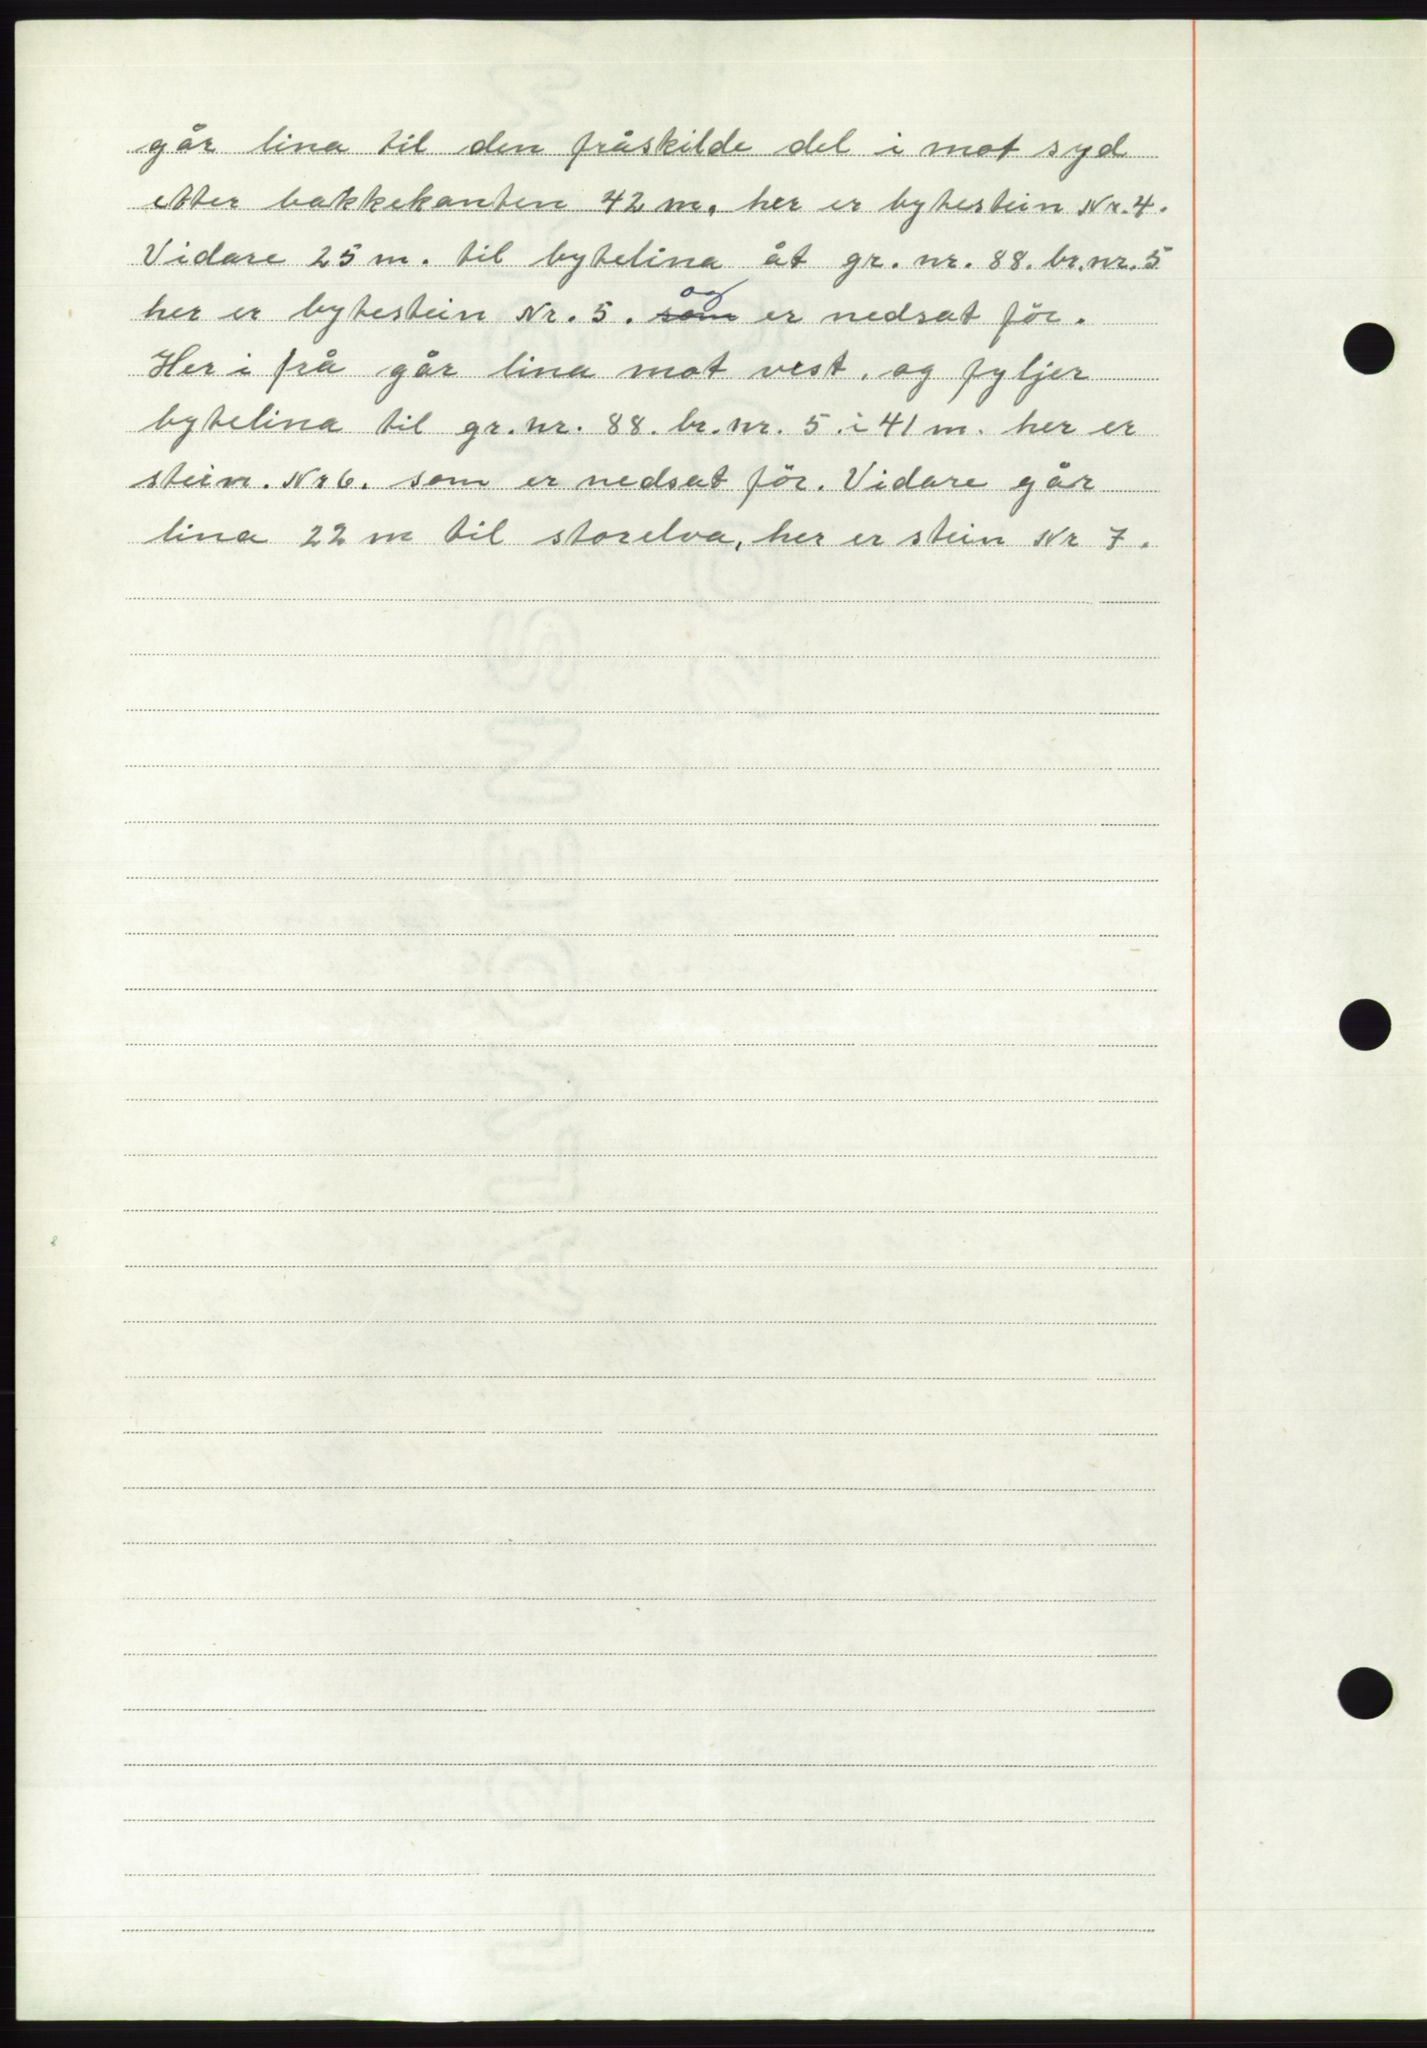 går lina til den fråskilde del i mot syd
etter bakkekanten 42 m. her er bytestein Nr. 4.
Vidare 25 m. til bytelina åt gr. nr. 88. br. nr. 5
og
her er bytestein Nr. 5. som er nedsat för.
Her i frå går lina mot vest. og fyljer
bytelina til gr. nr. 88. br. nr. 5. i 41 m. her er
stein. Nr 6. som er nedsat för. Vidare går
lina 22 m til storelva, her er stein Nr 7.